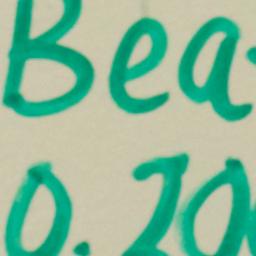 Bea
0.20